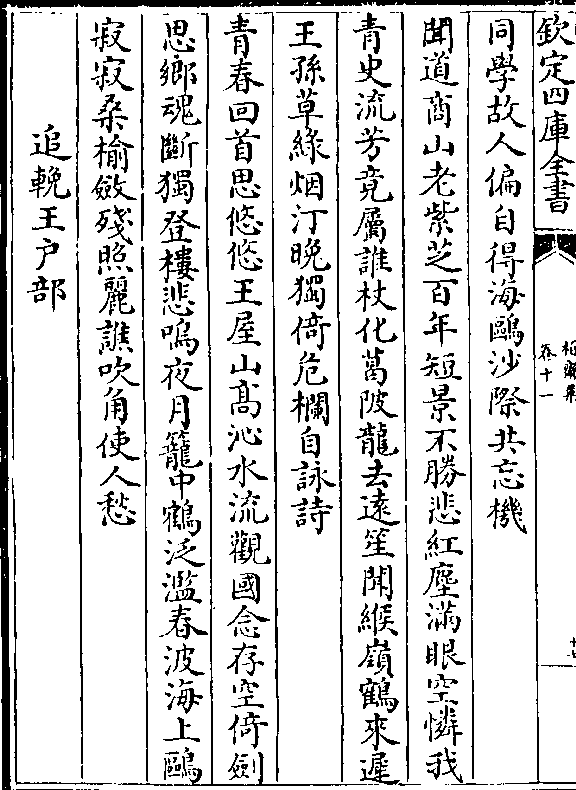 欽定四庫全書
卷十一
同學故人偏自得海鷗沙際共忘機
聞道商山老紫芝百年短景不勝悲紅塵滿眼空憐我
青史流芳竟屬誰杖化葛陂龍去遠笙聞緱嶺鶴來遲
王孫草綠烟汀晚獨倚危欄自詠詩
青春回首思悠悠王屋山髙沁水流觀國念存空倚劍
思鄉魂斷獨登樓悲鳴夜月籠中鶴泛濫春波海上鷗
寂寂桑榆斂殘照麗譙吹角使人愁
追輓王户部